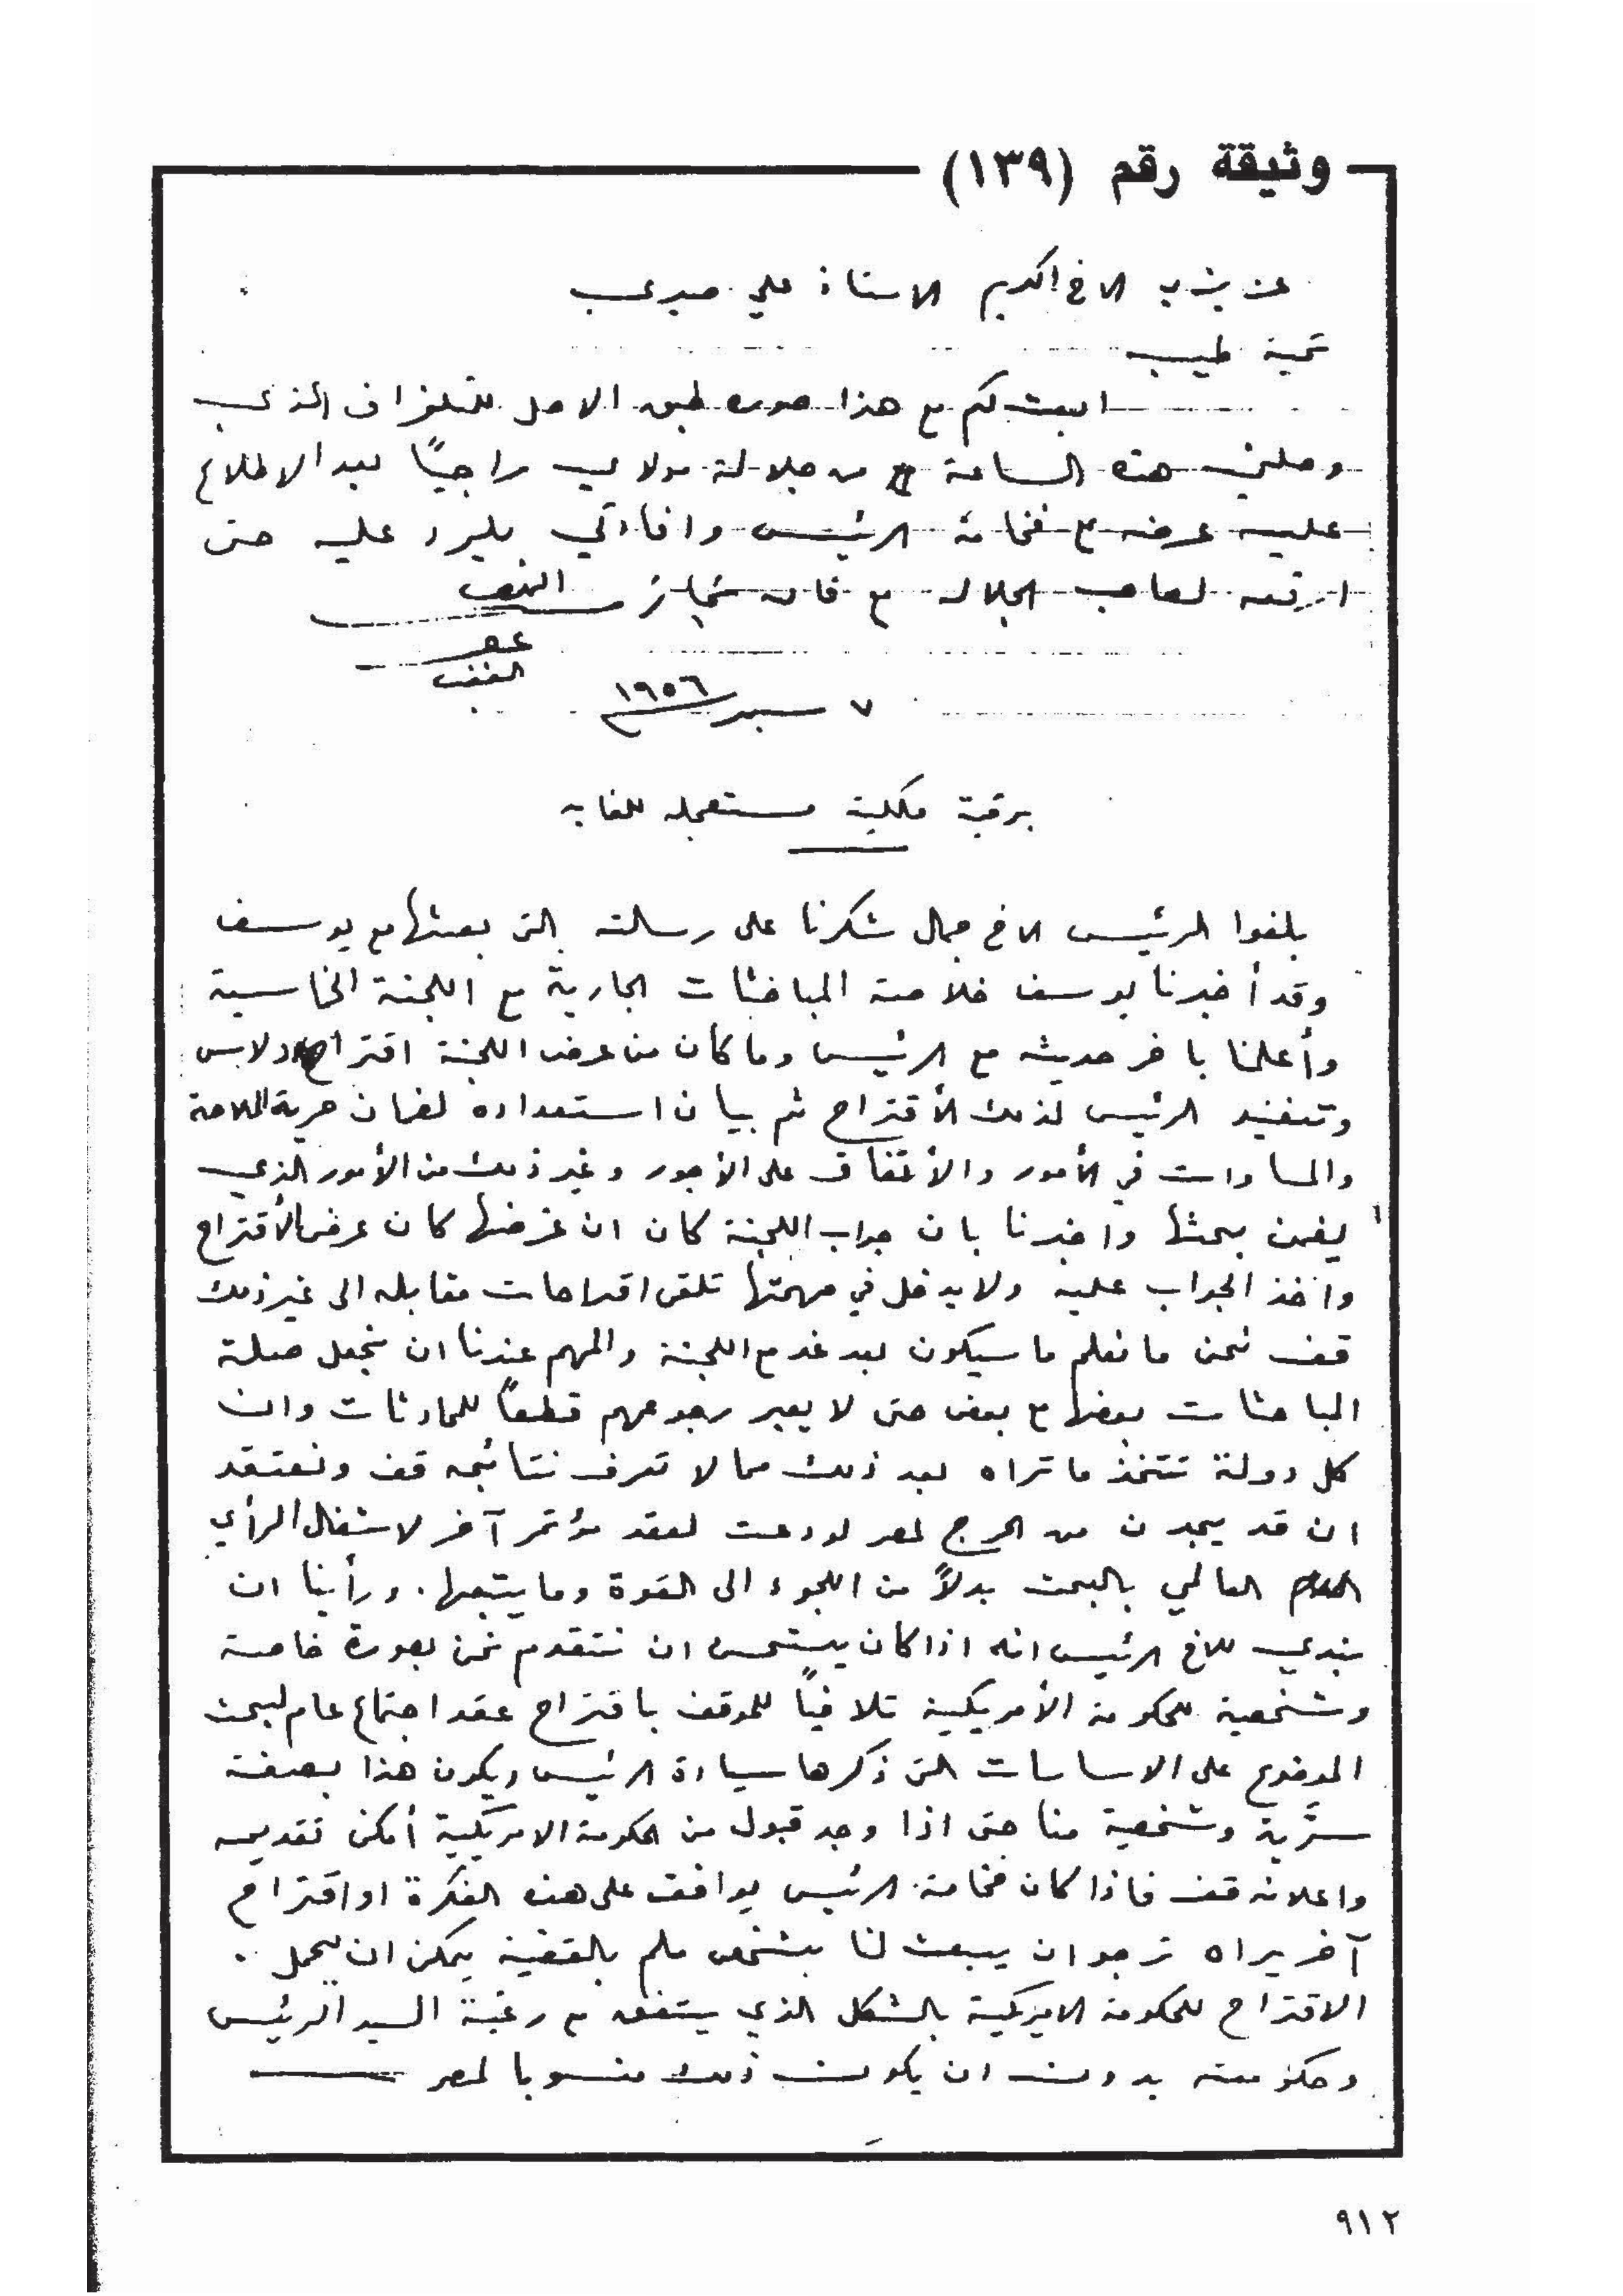 وثيقة رقم (١٣٩)
عزيزي الاخ الكريم الاستاذ علي صبري
تحية طيبه
ابعث لكم مع هذا صوره طبق الاصل للتلغراف الذي
وصلني هذه الساعة من جلالة مولاي راجيًا بعد الاطلاع
عليه عرضه مع فخامة الرئيس وافادتي بالرد عليه حتى
ارفعه لصاحب الجلاله مع فائق
٧ سبتمبر ١٩٥٦
برقية ملكية مستعجله للغايه
بلغوا الرئيس الاخ جمال شكرنا على رسالته التى بعثها مع يوسف
وقد أخبرنا يوسف خلاصة المباحثات الجارية مع اللجنة الخماسية
وأعلمنا بآخر حديثه مع الرئيس وما كان من عرض اللجنة اقتراح دلاس
وتفنيد الرئيس لذلك الأقتراح ثم بيان استعداده لضمان حرية الملاحة
والمساوات في الأمور والأتفاق على الأجور وغير ذلك من الأمور الذي
يضمن بحثها واخبرنا بان جواب اللجنة كان ان غرضها كان عرض الأقتراح
واخذ الجواب عليه ولا يدخل في مهمتها تلقى اقتراحات مقابله الى غير ذلك
قف نحن ما نعلم ما سيكون بعد غد مع اللجنة والمهم عندنا ان نجعل صلة
المباحثات بعضها مع بعض حتى لا يعبر رجوعهم قطعاً للمحادثات وان
كل دولة تتخذ ما تراه بعد ذلك مما لا تعرف نتائجه قف ونعتقد
ان قد يجدن من الحرج لمصر لو دعت لعقد مؤتمر آخر لاشغال الرأي
العالمي بالبحث بدلاً من اللجوء الى القوة وما يتبعها. ورأينا ان
نبدي للاخ الرئيس انه اذا كان يستحسن ان نتقدم نحن بصورة خاصة
وشخصية للحكومة الأمريكية تلافياً للموقف باقتراح عقد اجتماع عام لبحث
الموضوع على الاساسات التى ذكرها سيادة الرئيس ويكون هذا بصفة
سرّية وشخصية منا حتى اذا وجد قبول من الحكومة الامريكية أمكن تقديمه
واعلانه قف فاذا كان فخامة الرئيس يوافق على هذه الفكرة او اقتراح
آخر يراه نرجو ان يبعث لنا بشخص ملم بالقضية يمكن ان يحمل
الاقتراح للحكومة الامريكية بالشكل الذي يتفق مع رغبة السيد الرئيس
وحكومته بدون ان يكون ذلك منسوبا لمصر
٩١٢